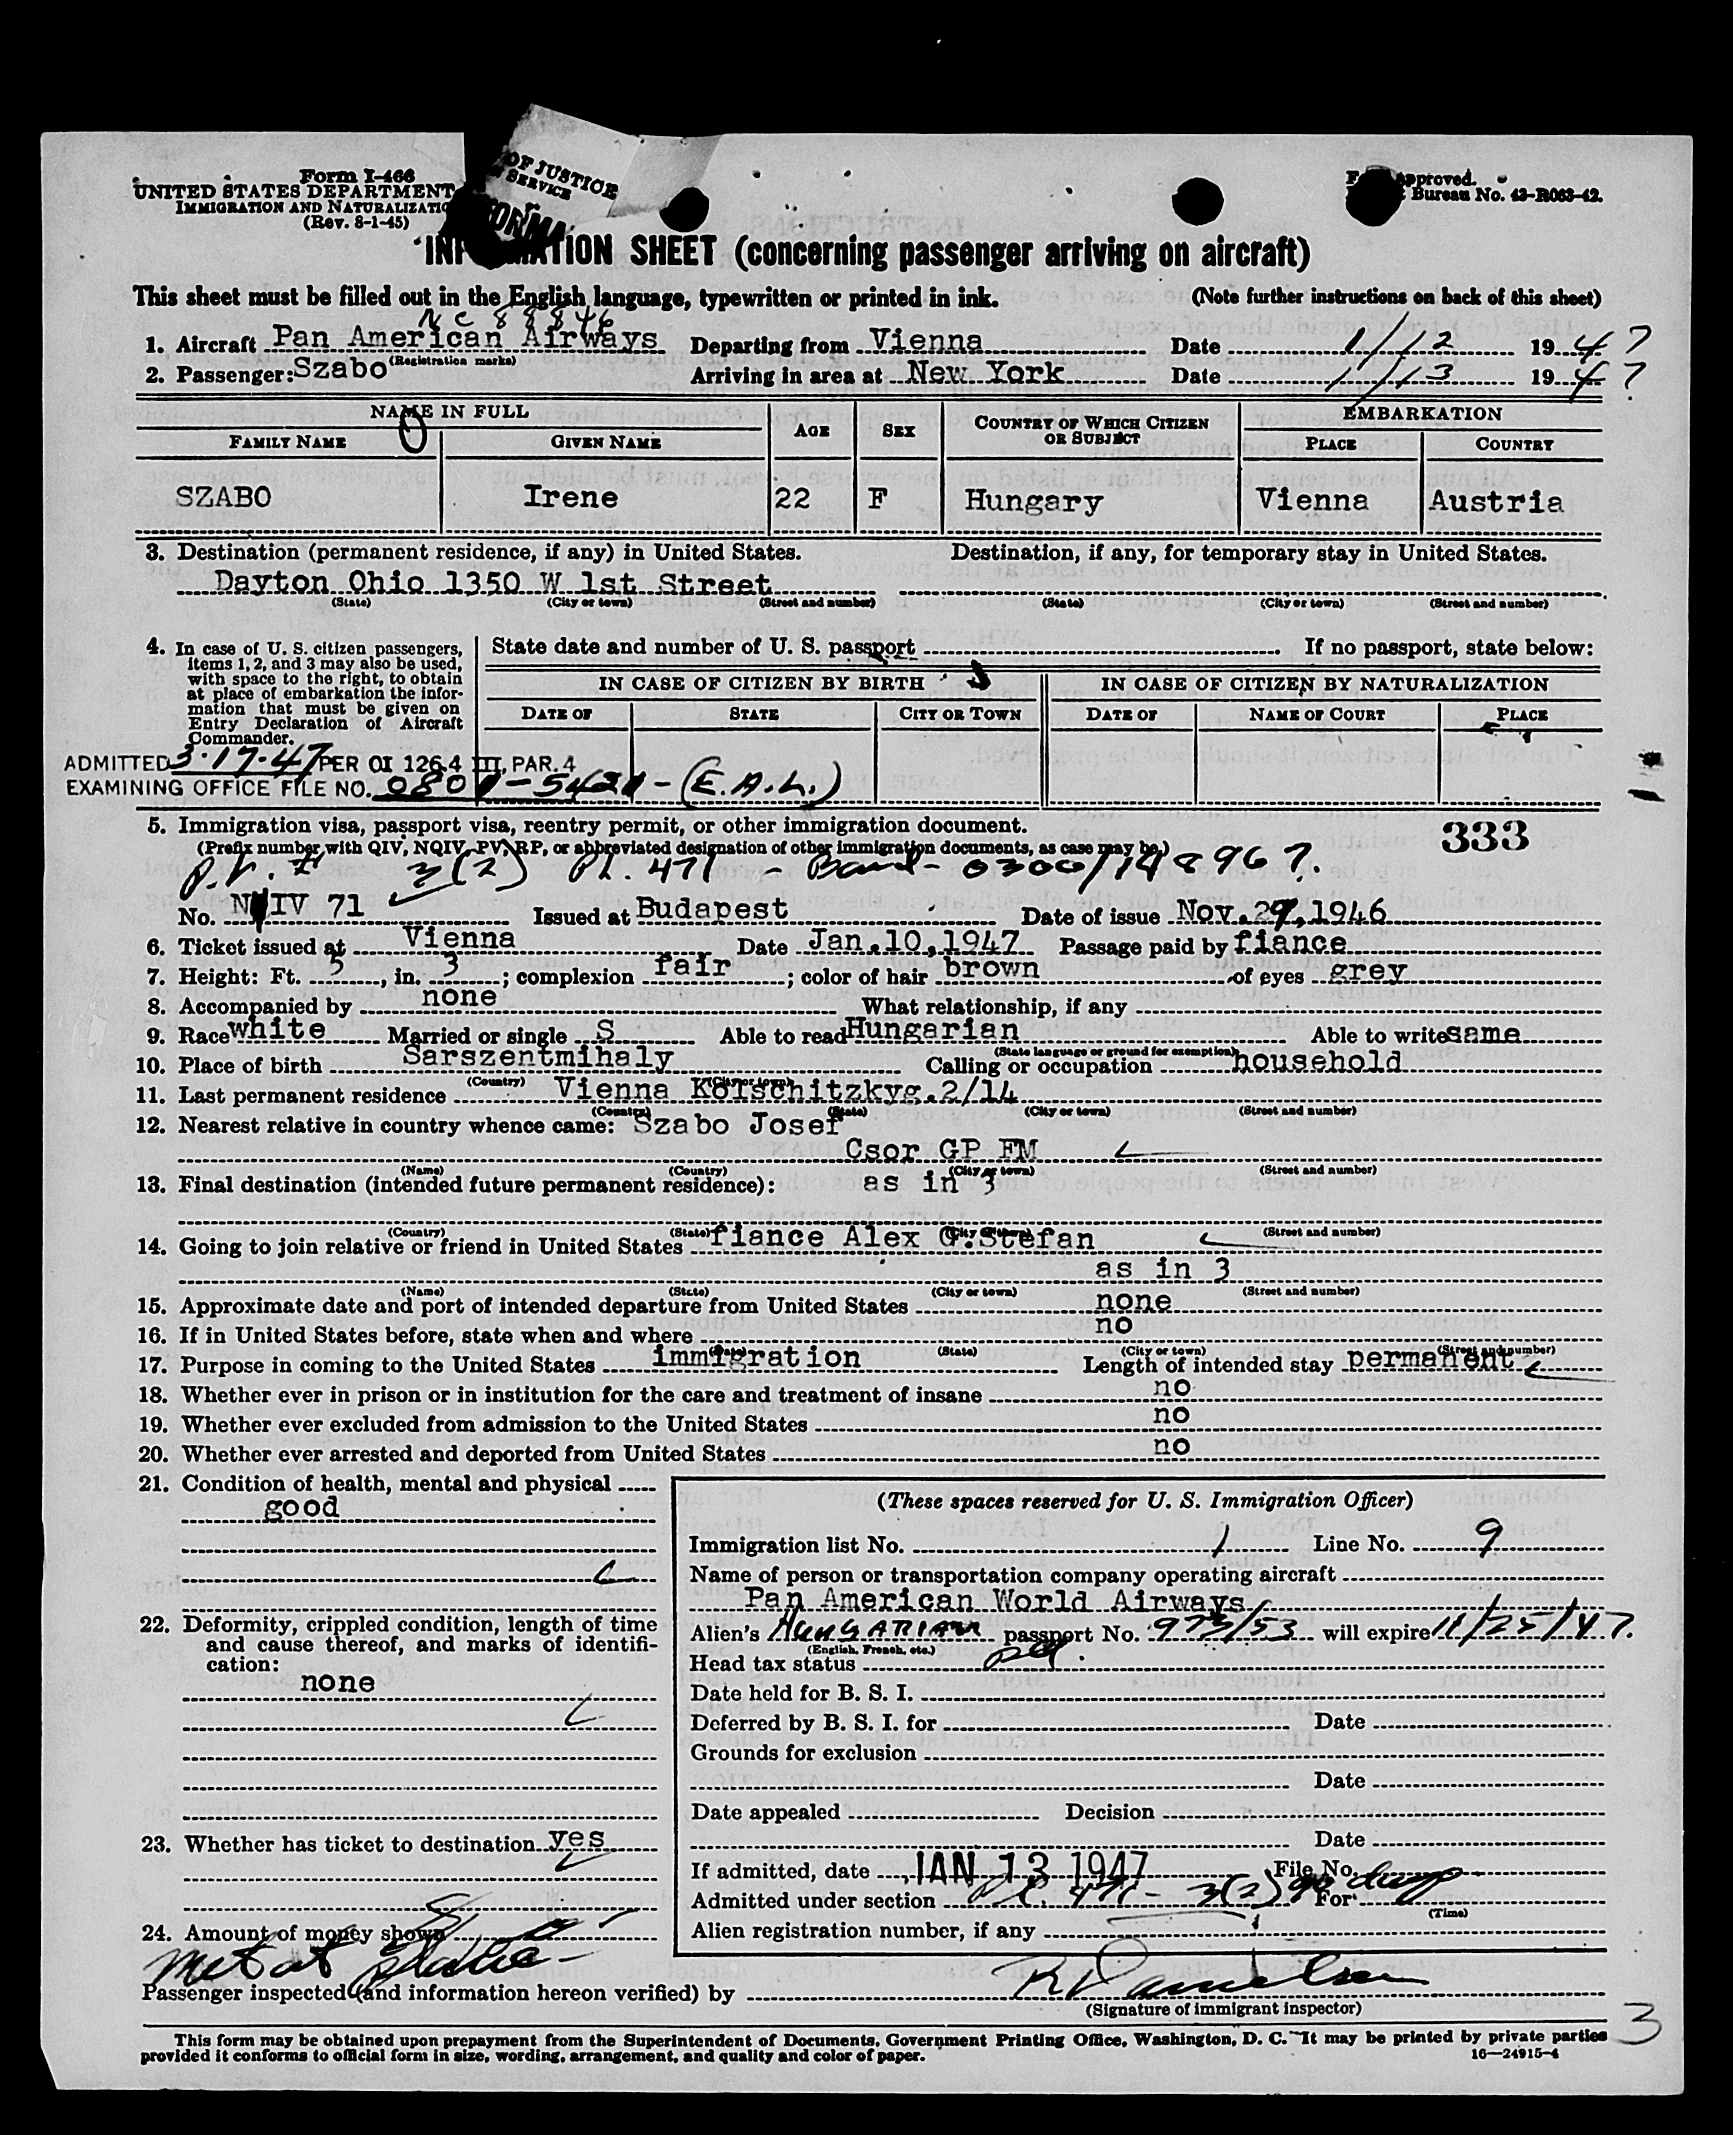 Form I-466
UNITED STATES DEPARTMENT
OF JUSTICE
IMMIGRATION AND NATURALIZATIO
SERVICE
(Rev. 8-1-45)
Approved.
Bureau No. 43-R063-42.
INFORMATION SHEET (concerning passenger arriving on aircraft)
This sheet must be filled out in the English language, typewritten or printed in ink. (Note further instructions on back of this sheet)
NC 88846
1. Aircraft Pan American Airways Departing from Vienna Date 1/12 1947
(Registration marks)
2. Passenger: Szabo Arriving in area at New York Date 1/13 1947
NAME IN FULL AGE SEX COUNTRY OF WHICH CITIZEN OR SUBJECT EMBARKATION
FAMILY NAME GIVEN NAME PLACE COUNTRY
SZABO Irene 22 F Hungary Vienna Austria
3. Destination (permanent residence, if any) in United States. Destination, if any, for temporary stay in United States.
Dayton Ohio 1350 W 1st Street
(State) (City or town) (Street and number) (State) (City or town) (Street and number)
4. In case of U. S. citizen passengers, items 1, 2, and 3 may also be used, with space to the right, to obtain at place of embarkation the information that must be given on Entry Declaration of Aircraft Commander.
State date and number of U. S. passport If no passport, state below:
IN CASE OF CITIZEN BY BIRTH IN CASE OF CITIZEN BY NATURALIZATION
DATE OF STATE CITY OR TOWN DATE OF NAME OF COURT PLACE
ADMITTED 3-17-47 PER OI 126.4 III, PAR. 4
EXAMINING OFFICE FILE NO. 0801-5421-(E.A.L.)
5. Immigration visa, passport visa, reentry permit, or other immigration document. 333
(Prefix number with QIV, NQIV, PV, RP, or abbreviated designation of other immigration documents, as case may be.)
P.V. # 3(2) PL. 471 -
No. IV 71 Issued at Budapest Date of issue Nov. 29, 1946
6. Ticket issued at Vienna Date Jan. 10, 1947 Passage paid by fiance
7. Height: Ft. 5, in. 3; complexion fair; color of hair brown of eyes grey
8. Accompanied by none What relationship, if any
9. Race white Married or single S Able to read Hungarian Able to write same
(State language or ground for exemption)
10. Place of birth Sarszentmihaly Calling or occupation household
(Country) (City or town)
11. Last permanent residence Vienna Kolschitzkyg. 2/14
(Country) (State) (City or town) (Street and number)
12. Nearest relative in country whence came: Szabo Josef
Csor GP FM
(Name) (Country) (City or town) (Street and number)
13. Final destination (intended future permanent residence): as in 3
(Country) (State) (City or town) (Street and number)
14. Going to join relative or friend in United States fiance Alex G. Stefan
as in 3
(Name) (State) (City or town) (Street and number)
15. Approximate date and port of intended departure from United States none
16. If in United States before, state when and where no
(Date) (State) (City or town) (Street and number)
17. Purpose in coming to the United States immigration Length of intended stay permanent
18. Whether ever in prison or in institution for the care and treatment of insane no
19. Whether ever excluded from admission to the United States no
20. Whether ever arrested and deported from United States no
21. Condition of health, mental and physical
good
22. Deformity, crippled condition, length of time
and cause thereof, and marks of identifi-
cation:
none
23. Whether has ticket to destination yes
24. Amount of money shown
Met at
(These spaces reserved for U. S. Immigration Officer)
Immigration list No. 1 Line No. 9
Name of person or transportation company operating aircraft
Pan American World Airways
Alien's HUNGARIAN passport No. 973/53 will expire 11/25/47.
(English, French, etc.)
Head tax status pd.
Date held for B. S. I.
Deferred by B. S. I. for Date
Grounds for exclusion
Date
Date appealed Decision
Date
If admitted, date JAN 13 1947 File No.
Admitted under section PL. 471 - 3(2) 90 days For
(Time)
Alien registration number, if any
Passenger inspected (and information hereon verified) by R Danielsen
(Signature of immigrant inspector)
3
This form may be obtained upon prepayment from the Superintendent of Documents, Government Printing Office, Washington, D. C. It may be printed by private parties
provided it conforms to official form in size, wording, arrangement, and quality and color of paper. 16—24915-4